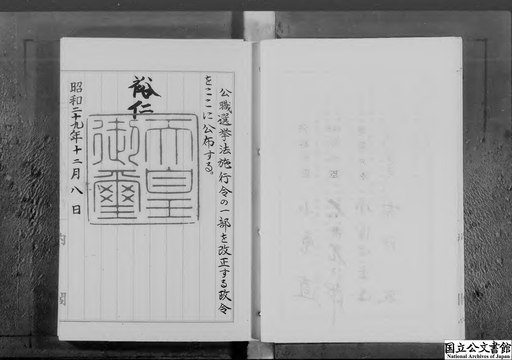 公職選挙法施行令の一部を改正する政令
をここに公布する。
裕仁
天皇
御璽
昭和二十九年十二月八日
国立公文書館
National Archives of Japan